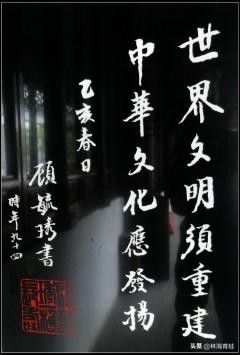 世界文明須重建
中華文化應發揚
乙亥春日
顧毓琇書
時年九十四
头条 @林海青蛙